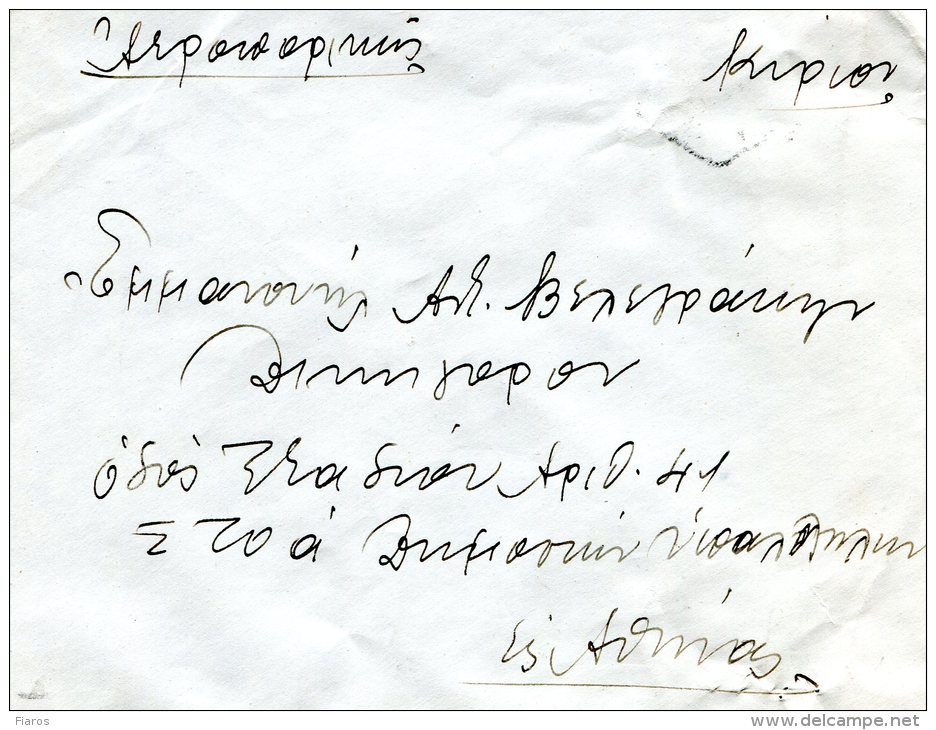 Ἀεροπορικῶς Κύριον
Ἐμμανουήλ Αλ. Βελεγράκην
Δικηγόρον
ὁδὸς Σταδίου Αριθ. 41
Στοά Δημοσίων Ὑπαλλήλων
Εἰς Ἀθήνας
Fiaros
www.delcampe.net